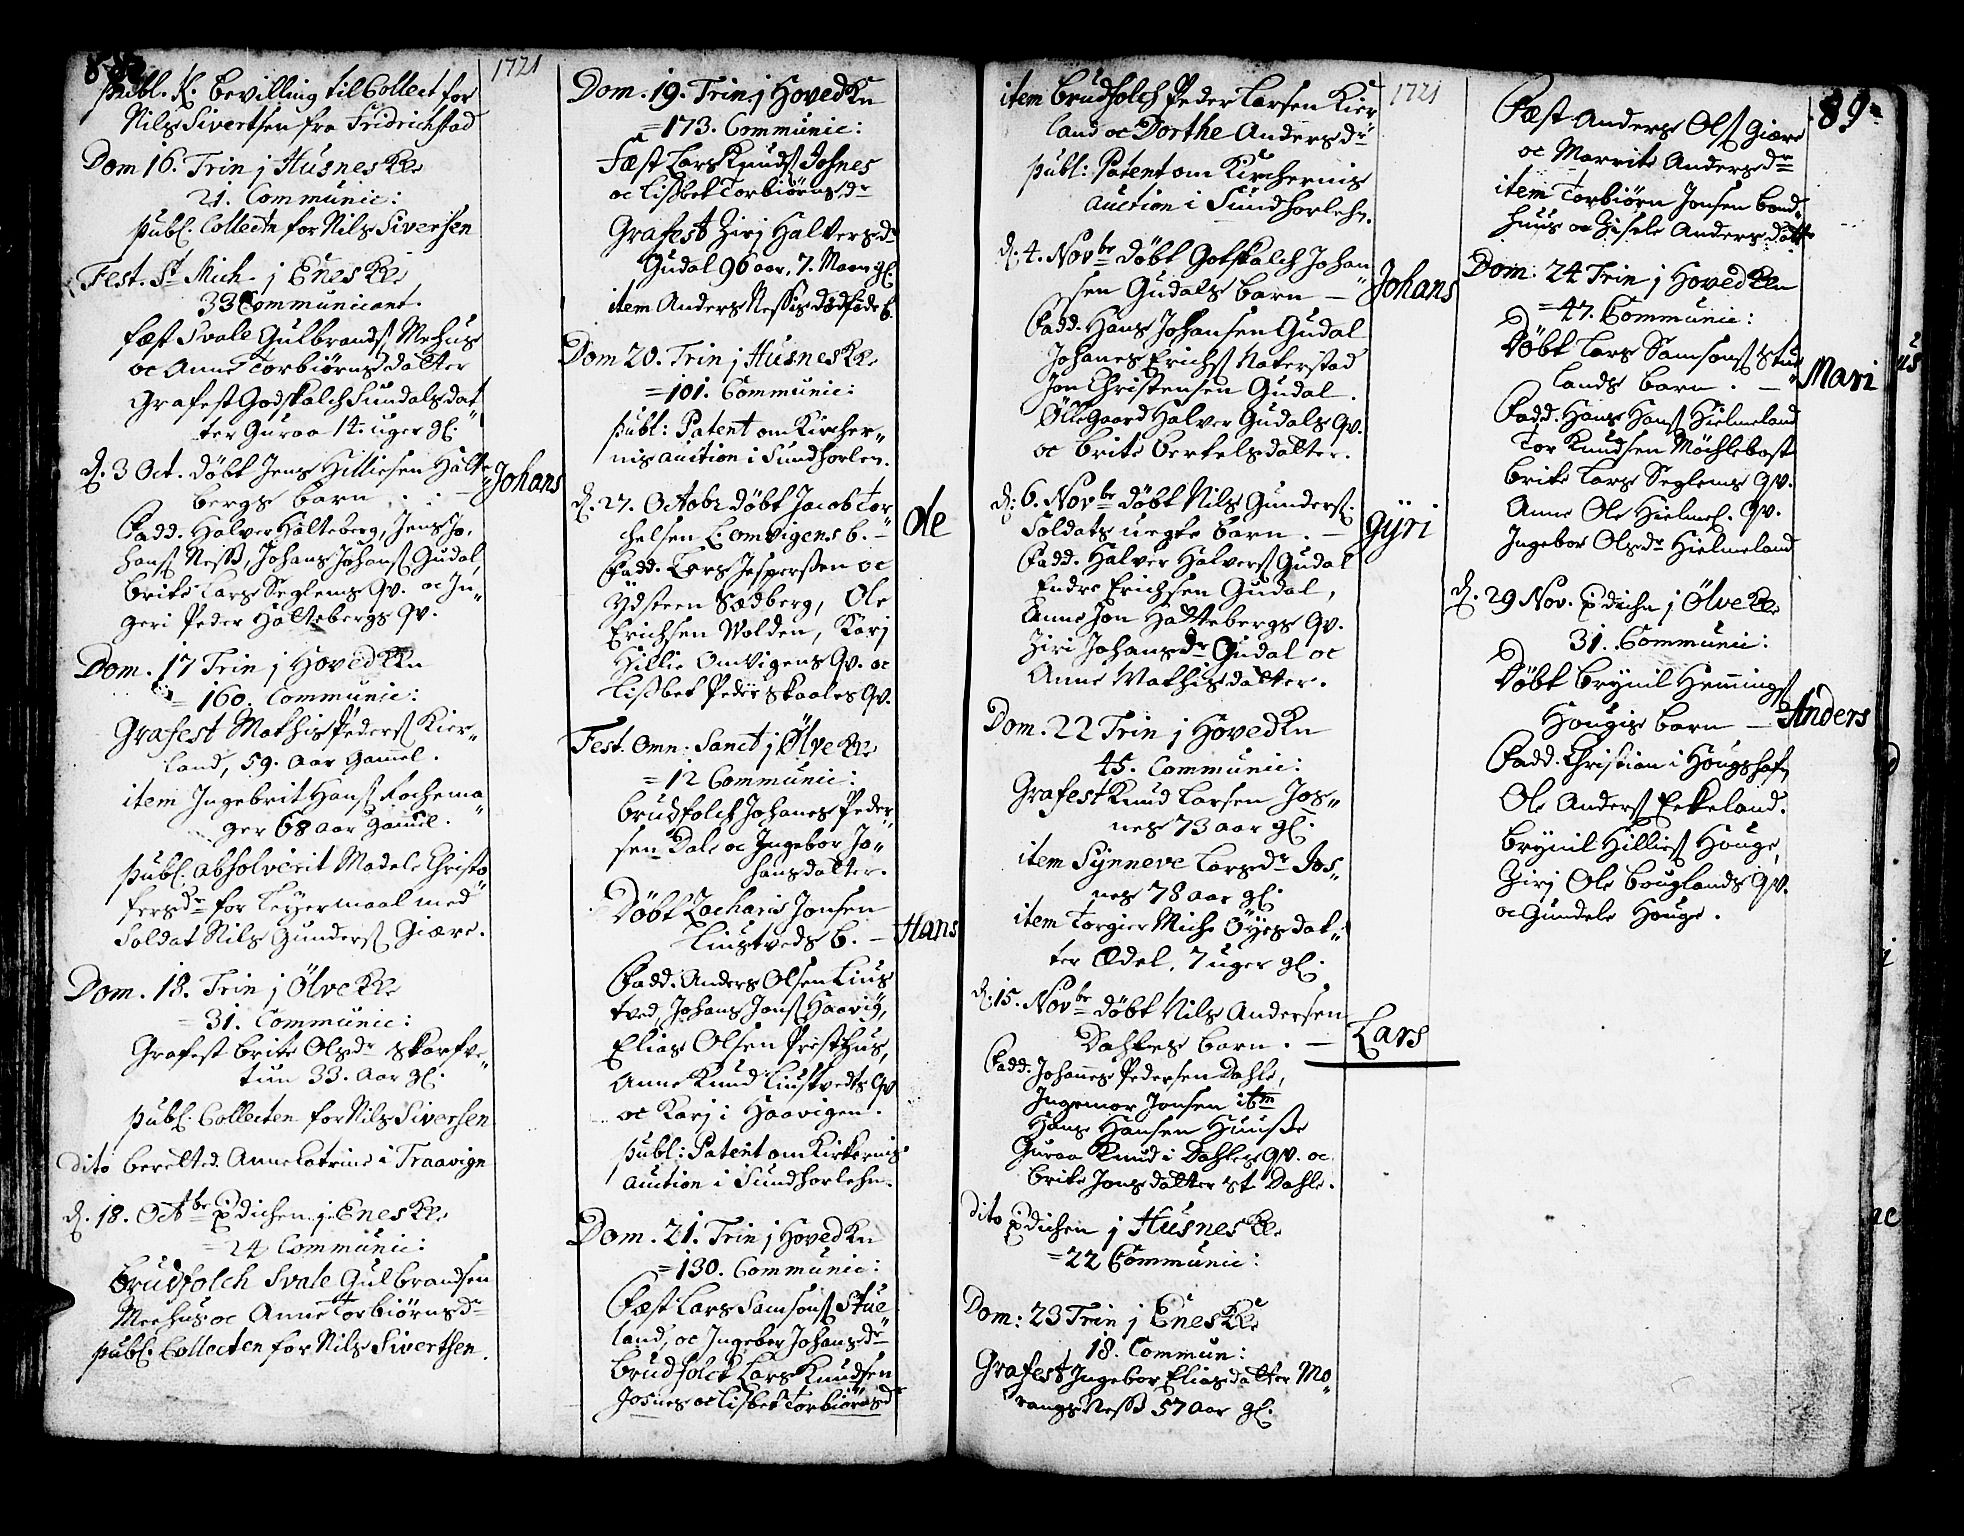 88.
1721
Publ. K. bevilling til Collect for
Nils Sivertsen fra Fridrichstad
Dom 16. Trin j Husnes Kke
21. Communic:
Publ. Collectn for Nils Siversen
Fest. St Mich. j Enes Kke
33 Communicant.
fæst Svale Gulbrands. Mehus
oc Anne Torbiørnsdatter
Grafest Godskalch Sundals dat
ter Guroa 14. uger gl.
d. 3 Oct. døbt Jens Hilliesen Hatte
bergs barn . . – Johans
Fadd. Halver Hatteberg, Jens Jo,
hans. Ness, Johans Johans. Gudal,
brite Lars Seglems Qv. oc In,,
geri Peder Hattebergs Qv.
Dom. 17 Trin j Hoved Kkn
= 160. Communic:
Grafest Mathis Peders. Kier,,
land, 59. aar gamel.
item Ingebrit Hans. Rochema
ger 68 aar gamel.
Publ. Absolverit Madele Christo
fersdr for Leyermaal med
Soldat Nils Gunders. Giære.
Dom. 18. Trin j Ølve Kke
= 31. Communic:
Grafest brite Olsdr Skarfve,,
tun 33. aar gl.
Publ. Collecten for Nils Siversen
dito beretted Anne Catrine i Traavign
d. 18. Octbr pdichen j Enes Kke
= 24 Communic:
brudfolch Svale Gulbrandsen
Meehus oc Anne Torbiørnsdr
Publ. Collecten for Nils Sivertsen.
Dom. 19. Trin j Hoved Kn
= 173. Communic:
Fæst Lars Knuds. Johnes
oc Lisbet Torbiørnsdr
Grafest Zirj Halversdr
Gudal 96 aar, 7. Maan gl.
item Anders Nessis dødfødde b.
Dom 20. Trin j Husnes Kke
= 101. Communic:
Publ: Patent om Kircher,,
nis auction i Sundhorlen.
d. 27. Octobr døbt Jacob Tor
chelsen L. omvigens b. – Ole
Fadd. Lars Jespersen oc
Ydsteen Sædberg, Ole
Erichsen Wolden, Karj
Hillie Omvigens Qv. oc
Lisbet Peder Skaales Qv.
Fest. Omn: Sanct j Ølve Kke
= 12 Communic:
brudfolch Johanes Peder,,
sen Dale oc Ingebor Jo,,
hansdatter.
Døbt Zacharis Jonsen
Liustveds b. – Hans
Fadd. Anders Olsen Lius
tved, Johans Jons. Haavig,
Elias Olsen Prestthus,
Anne Knud Liustvedts Qv
oc Karj i Haavigen.
Publ: Patent om Kirkernis
auction i Sundhorlehn.
Dom. 21. Trin j Hoved Kn
= 130. Communic:
Fæst Lars Samsons. Stue
land, oc Ingebor Johansdr
brudfolck Lars Knudsen
Josnes oc Lisbet Torbiørnsd
item brudfolch Peder Larsen Kier
land oc Dorthe Andersdr
Publ: Patent om Kirchernis
auction i Sundhorlehn.
d. 4. Novbr døbt Gotskalch Johan
sen Gudals barn – Johans
Fadd. Hans Johansen Gudal
Johanes Erichs. Naterstad
Jon Christensen Gudal.
Øllegaard Halver Gudals Qv.
oc brite bertelsdatter.
d. 6. Novbr døbt Nils Gunders.
Soldats uegte barn. – Gÿri
Fadd. Halver Halvers. Gudal
Endre Erichsen Gudal,
Anne Jon Hattebergs Qv.
Ziri Johansdr Gudal oc
Anne Mathisdatter.
Dom. 22 Trin j Hoved Kn
45. Communic:
Grafest Knud Larsen Jos,,
nes 73 aar gl.
item Sÿnneve Larsdr Jos,,
nes 78 aar gl.
item Torgier Miche Øyes dat,,
ter Ædel, 7 uger gl.
d. 15. Novbr døbt Nils Andersen
Dahles barn. – Lars
Fadd. Johannes Pedersen Dahle,
Ingemor Jonsen itm
Hans Hansen Huusse
Guroa Knud i Dahles Qv. oc
brite Jonsdatter st. Dahle.
dito pdichen j Husnes Kke
= 22 Communic:
Dom: 23 Trin j Enes Kke
18. Commun:
Grafest Ingebor Eliasdatter Mo,,
rangs Ness 57 aar gl.
1721
89.
Fæst Anders Ols. Giære
oc Marrite Andersdr
item Torbiørn Jonsen bond,,
huus oc Zisele Andersdattr
Dom. 24 Trin j Hoved Kkn
= 47. Communic:
Døbt Lars Samsons. Stue
lands barn. – Mari
Fadd. Hans Hans. Hielmeland
Tor Knudsen Möchlebost
brite Lars Seglems Qv.
Anne Ole Hielmel. Qv.
Ingebor Olsdr Hielmeland
d. 29 Nov. pdichn j Ølve Kke
31. Communic:
Døbt brynil Hemings.
Hougis barn – Anders
Fadd. Christian i Hougshafn
Ole Anders. Eekeland.
brynil Hillies. Houge,
Zirj Ole bouglands Qv.
oc Gundele Houge.